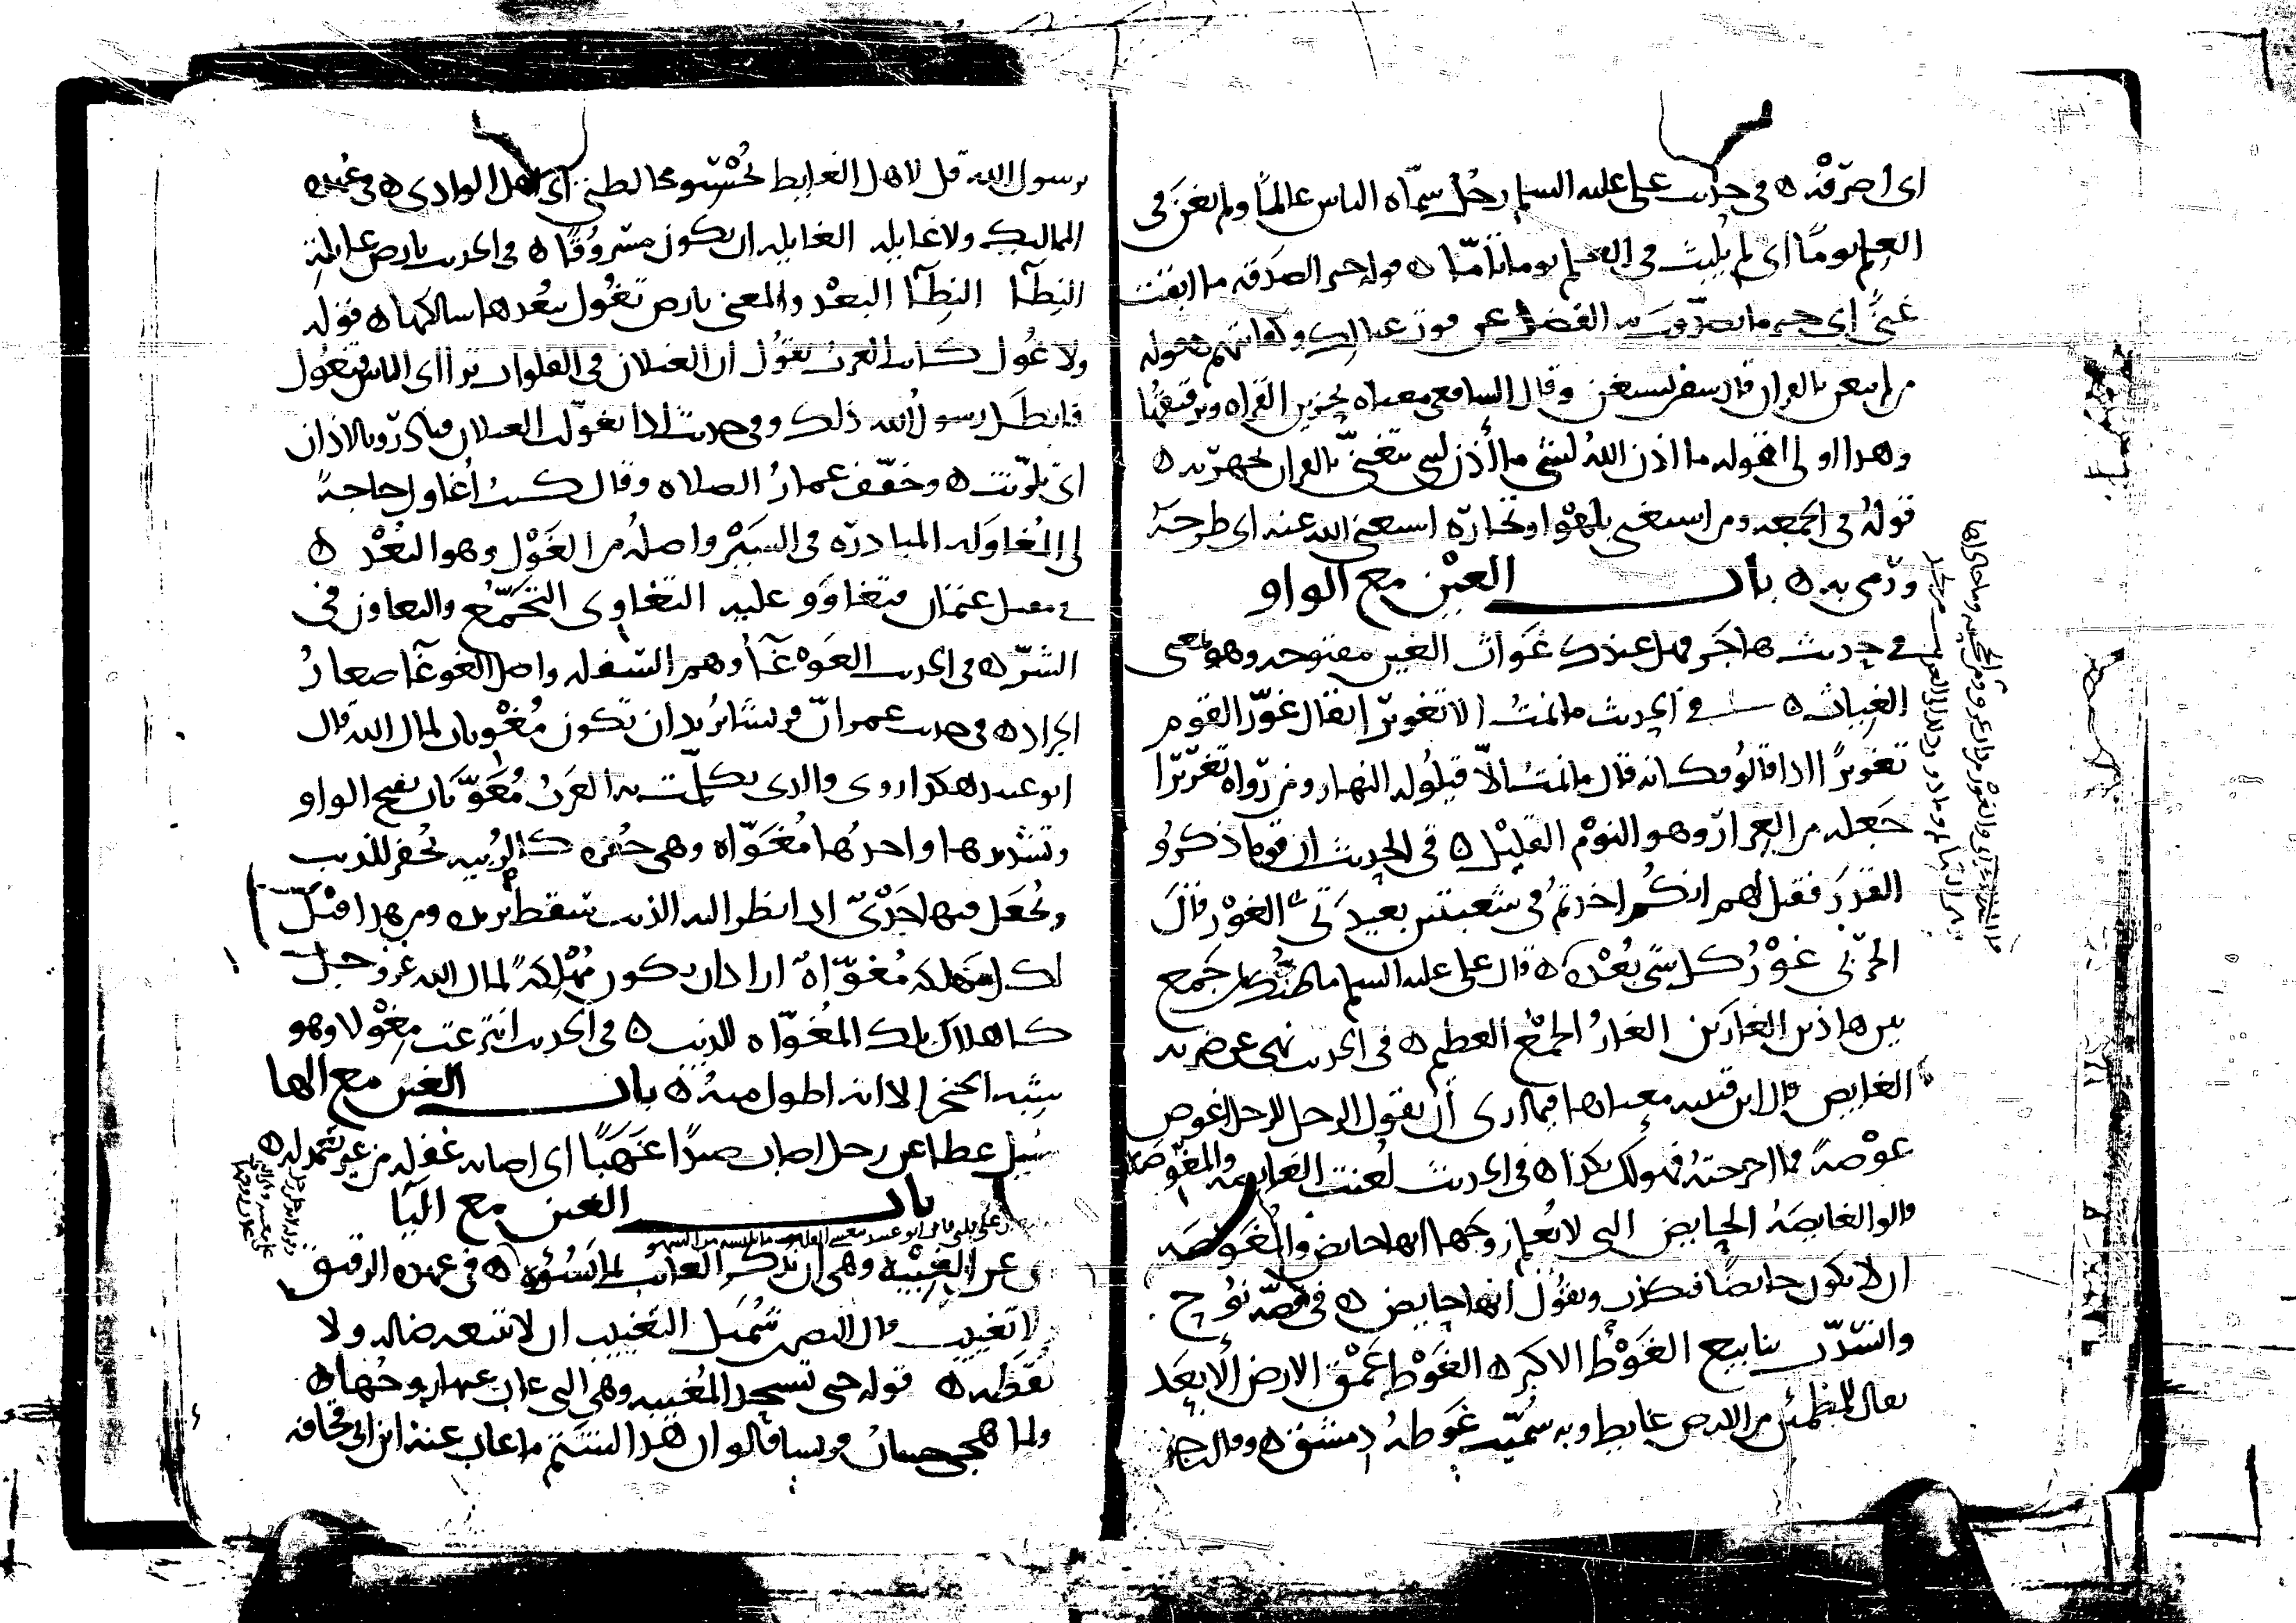 اى اصرفه ه في حديث على عليه السلم رجل سماه الناس عالما ولم يغن فى
العلم يوما اى لم يلبث فى العلم يوما تاما ه قوله خير الصدقة ما ابقت
غنى اى خير ما تصدقت به الفضل عن قوت عيالك وكفايتهم ه قوله
من لم يتغن بالقران قال سفين يستغن وقال الشافعى معناه تحزين القراه وترقيقها
وهذا اولى لقوله ما اذن الله لشى ما أذن لنبى يتغنى بالقران يجهر به ه
قوله فى الجمعه ومن استغنى بلهو او تجارة استغنى الله عنه اى طرحه
ورمى به ه باب الغين مع الواو
في حديث هاجر فهل عندك غواث الغين مفتوحه وهو بمعنى
الغياث ه في الحديث ما نمت الا تغويرا يقال غور القوم
تغويرا اذا قالوا فكانه قال ما نمت الا قيلوله النهار ومن رواه تغريرا
جعله من الغرار وهو النوم القليل ه فى الحديث ان قوما ذكروا
القدر فقيل لهم انكم اخذتم فى شعبتين بعيدتى الغور قال
الحربى غور كل شى بعده ه قال على عليه السلم ما ظنك بامرى جمع
بين هاذين الغارين الغار الجمع العظيم ه فى الحديث نهى عن ضربه
الغايص قال ابن قتيبه معناها فيما ارى أن يقول الرجل للرجل اغوص
غوصة فما اخرجته فهو لك بكذا ه فى الحديث لعنت الغايصه والمغوصه
قالوا الغايصه الحايض التى لا تعلم زوجها انها حايض والمغوصه
ان لا تكون حايضا فتكذب وتقول أنها حايض ه فى قصه نوح
وانسدت ينابيع الغوط الاكبر ه الغوط عمق الارض الابعد
يقال للمطمئن من الارض غايط وبه سميت غوطه دمشق ه وقال رجل
يرسول الله قل لاهل الغايط يحسنوا مخالطتى أى اهل الوادى ه فى عهده
المماليك ولا غايله الغايله ان يكون مسروقا ه فى الحديث بارض غايلة
النطا النطا البعد والمعنى بارض تغول ببعدها سالكها ه قوله
ولا غول كانت العرب تقول ان الغيلان فى الفلوات ترااى للناس فتغول
فابطل رسول الله ذلك وفى حديث اذا تغولت الغيلان فبادروا بالاذان
اى تلونت ه وخفف عمار الصلاه وقال كنت أغاول حاجة
لى المغاوله المبادرة فى السير واصله من الغول وهو البعد ه
في مقتل عثمان فتغاووا عليه التغاوى التجمع والتعاون فى
الشر ه فى الحديث الغوغآ وهم السفله واصل الغوغآ صغار
الجراد ه فى حديث عمر ان قريشا تريد ان تكون مغويات لمال الله قال
ابو عبيد هكذا روى والذى تكلمت به العرب مغويات بفتح الواو
وتشديدها واحدتها مغواه وهى حفره كالزبيه تحفر للذيب
ويجعل فيها جدى اذا نظر اليه الذيب سقط يريده ومن هذا قيل
لكل مهلكه مغواة اراد ان يكون مهلكة لمال الله عز وجل
كاهلاك تلك المغواه للذيب ه فى الحديث انتزعت مغولا وهو
شبه الخنجر الا انه اطول منه ه باب الغين مع الها
سيل عطا عن رجل اصاب صيدا غهبا اى اصابه غفله من غير تعمد له ه
باب الغين مع اليا
عن الغيبة وهى ان يذكر الغايب بما يسوه ه فى عهده الرقيق
لا تغييب قال النضر بن شميل التغييب ان لا تبيعه ضاله ولا
لقطه ه قوله حتى تستحد المغيبه وهى التى غاب عنها زوجها ه
ولما هجى حسان قريشا قالوا ان هذا لشتم ما غاب عنه ابن ابى قحافه